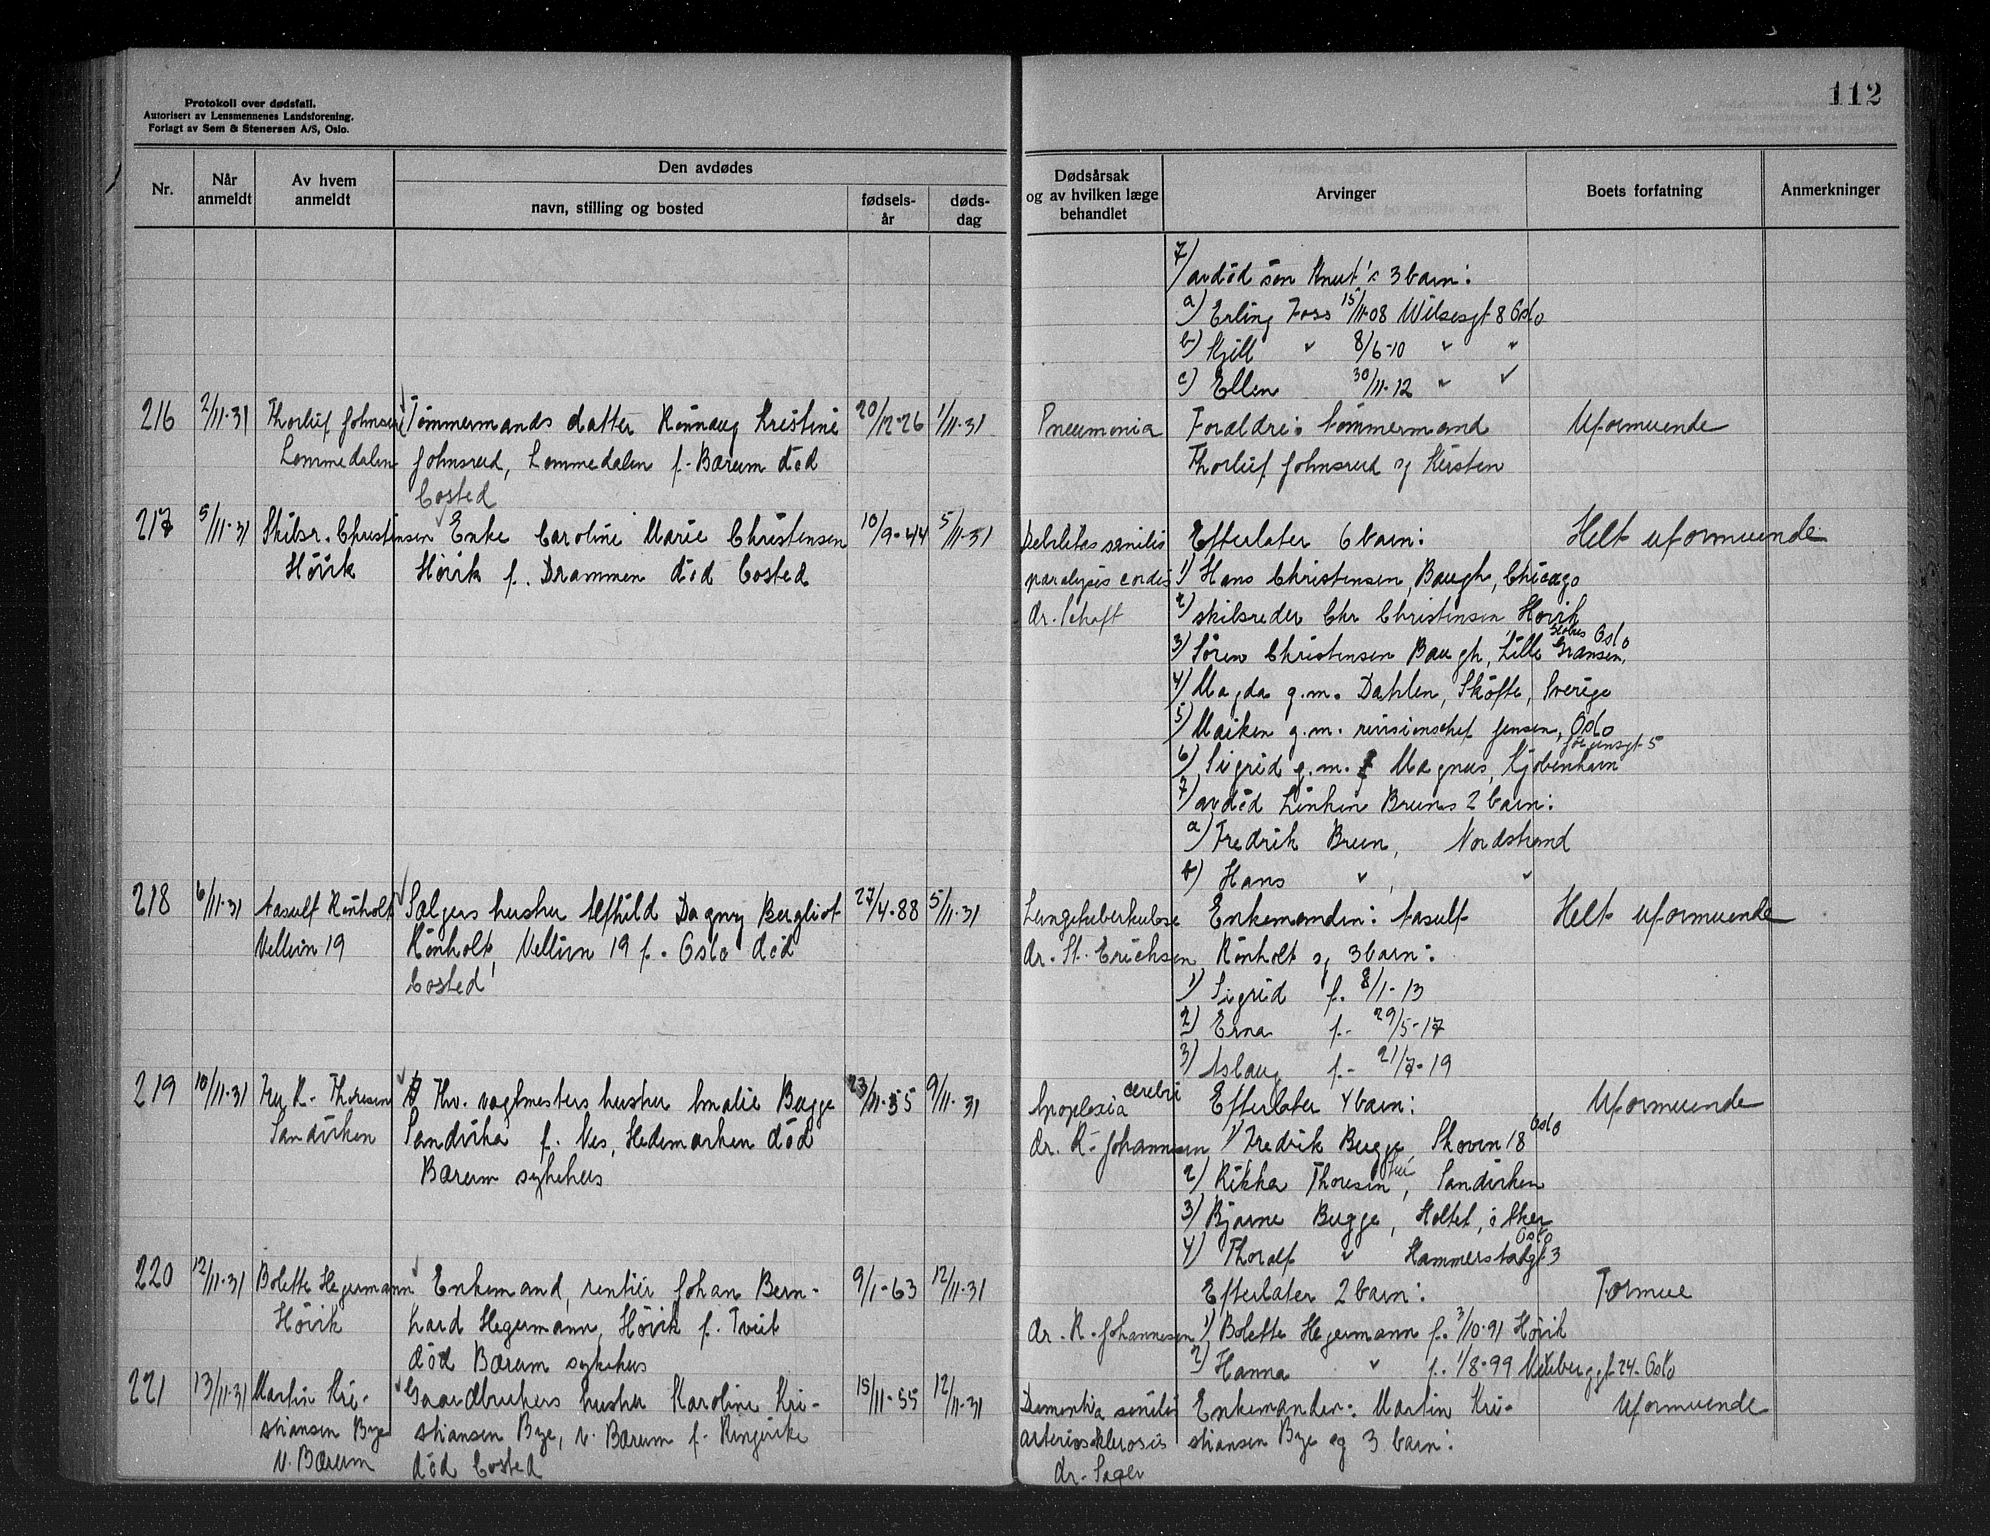 Protokoll over dødsfall.
Autorisert av Lensmennenes Landsforening.
Forlagt av Sem & Stenersen A/S, Oslo.
Nr.
Når anmeldt
Av hvem anmeldt
Den avdødes
navn, stilling og bosted
fødsels-år
døds-dag
216 2/11-31
Thorleif Johnsrud
Lommedalen
Tømmermands datter Rønnaug Kristine
Johnsrud, Lommedalen f. Bærum død
bosted
20/12-26 1/11-31
217 5/11-31
Skibsr. Christensen
Høvik
Enke Caroline Marie Christensen
Høvik f. Drammen død bosted
10/9-44 5/11-31
218 6/11-31
Aasulf Rönholt
Vellivn 19
Sælgers hustru Alfhild Dagny Bergliot
Rönholt, Vellivn 19 f. Oslo død
bosted
27/4-88 5/11-31
219 10/11-31
Fru R. Thoresen
Sandviken
Fhv. vagtmesters hustru Amalie Bugge
Sandvika f. Nes, Hedemarken død
Bærum sykehus
23/11-55 9/11-31
220 12/11-31
Bolette Hegermann
Høvik
Enkemand, rentier Johan Bern-
hard Hegermann, Høvik f. Tveit
død Bærum sykehus
9/1-63 12/11-31
221 13/11-31
Martin Kri-
stiansen Bye
V. Bærum
Gaardbrukers hustru Karoline Kri-
stiansen Bye, V. Bærum f. Ringerike
død bosted
15/11-55 12/11-31
112
Dødsårsak
og av hvilken læge
behandlet
Arvinger
Boets forfatning
Anmerkninger
7) avdød søn Knut's 3 barn:
a) Erling Foss 15/11-08 Wilsesgt 8 Oslo
b) Kjell " 8/6-10 " "
c) Ellen 30/11-12 " "
Pneumonia
Forældre: tømmermand
Thorleif Johnsrud og Kirsten
Uformuende
Debilitas senilis
paralysis cordis
dr. Schaft
Efterlater 6 barn:
1) Hans Christensen, Baugh, Chicago
2) skibsreder Chr Christensen Høvik
3) Søren Christensen Baugh, Lille Grænsen, Oslo
4) Magda g.m. Dahlen, Skøfte, Sverige
5) Maiken g.m. revisionschef Jensen, Oslo
6) Sigrid g.m. Magnus, Kjøbenhavn
7) avdød Linken Bruns 2 barn:
a) Fredrik Brun, Nordstrand
b) Hans " , "
Helt uformuende
Lungetuberkulose
dr. St. Erichsen
Enkemanden: Aasulf
Rönholt og 3 barn:
1) Sigrid f. 8/1-13
2) Erna f. 29/5-17
3) Aslaug f. 21/7-19
Helt uformuende
Apoplexia cerebri
dr. R. Johannesen
Efterlater 4 barn:
1) Fredrik Bugge, Skovvn 18 Oslo
2) Rikka Thoresen, Sandviken
3) Bjarne Bugge, Holtet, Ø. Aker
4) Thoralf " Hammerstadgt 3 Oslo
Uformuende
dr. R. Johannesen
Efterlater 2 barn:
1) Bolette Hegermann f. 3/10-91 Høvik
2) Hanna " f. 1/8-99 24 Oslo
Formue
Dementia senilis
arteriosklerosis
dr. Sager
Enkemanden: Martin Kri-
stiansen Bye og 3 barn:
Uformuende